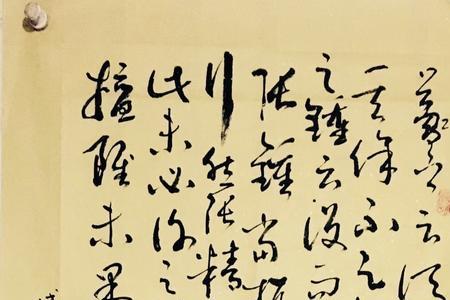 云頃
其餘不足
之鍾云沒而
張鍾當抗
行然張精
此未必謝之
擅雖未果